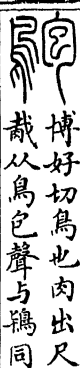 䳈
博好切鳥也肉出尺
胾从鳥包聲与鴇同